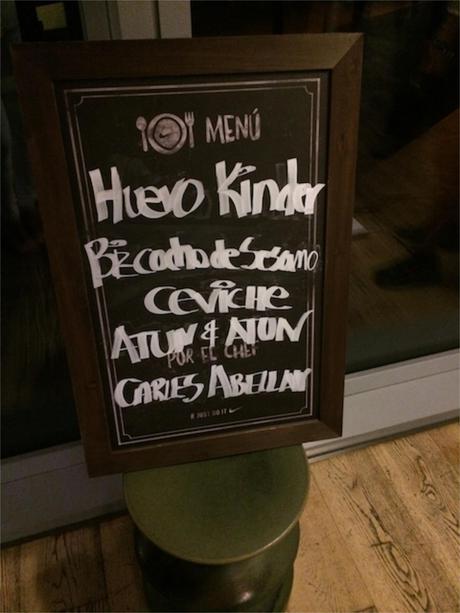 MENÚ
Huevo Kinder
Bizcocho de Sésamo
CEVICHE
ATUN & ATUN
POR EL CHEF
CARLES ABELLAN
# JUST DO IT